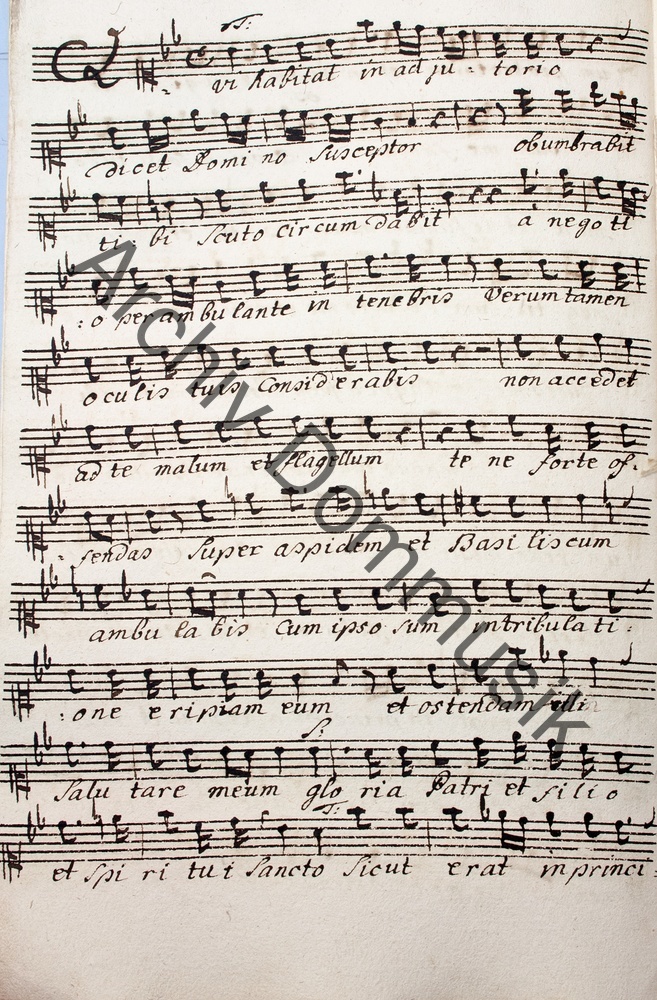 T:
Qui habitat in adju - torio
dicet Domino susceptor obumbrabit
ti - bi scuto circumdabit a negoti
: o perambulante in tenebris Verumtamen
oculis tuis Considerabis non accedet
ad te malum et flagellum te ne forte of:
: sendas super aspidem et Basiliscum
ambulabis Cum ipso sum intribulati:
: one eripiam eum et ostendam illi
S:
salutare meum gloria Patri et filio
T:
et spiritui sancto sicut erat in princi:
Archiv Dommusik